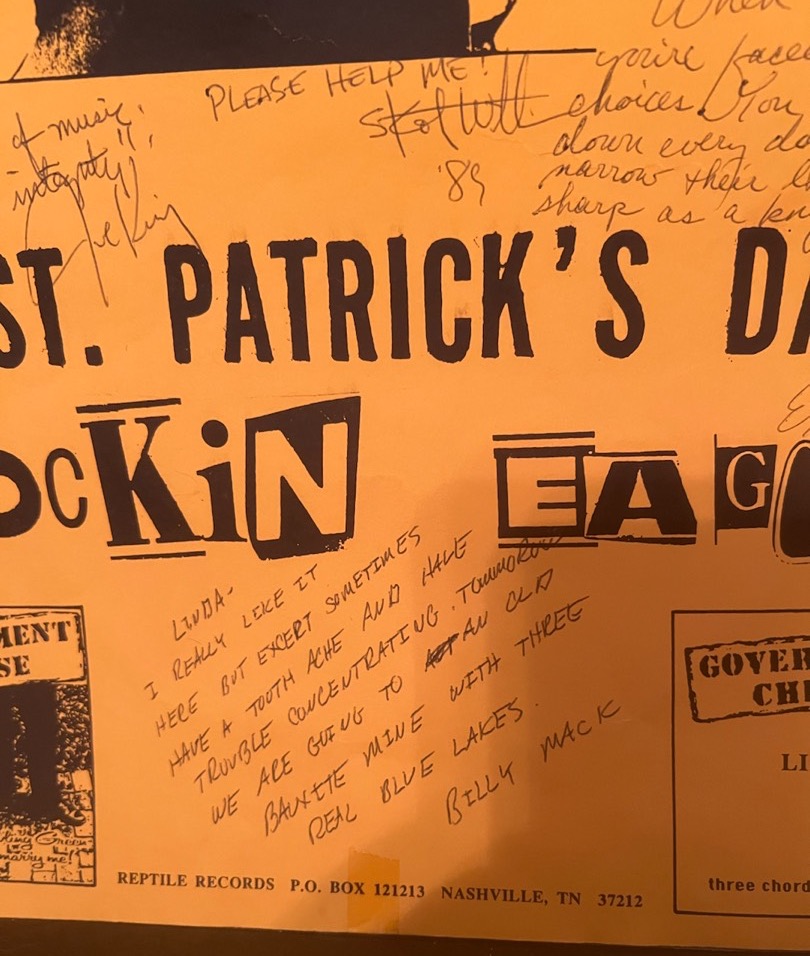 When
you're face
choices. You
down every do
narrow their l
sharp as a kn
PLEASE HELP ME!
'89
of music.
integrity!!
ST. PATRICK'S DA
OCKiN EAG
LINDA-
I REALLY LIKE IT
HERE BUT EXCERT SOMETIMES
HAVE A TOUTH ACHE AND HALE
TROUBLE CONCENTRATING. TOMMOROW
WE ARE GOING TO AN OLD
BAUXITE MINE WITH THREE
REAL BLUE LAKES.
BILLY MACK
MENT
SE
ling Green
marry me!
GOVER
CH
LI
three chord
REPTILE RECORDS P.O. BOX 121213 NASHVILLE, TN 37212